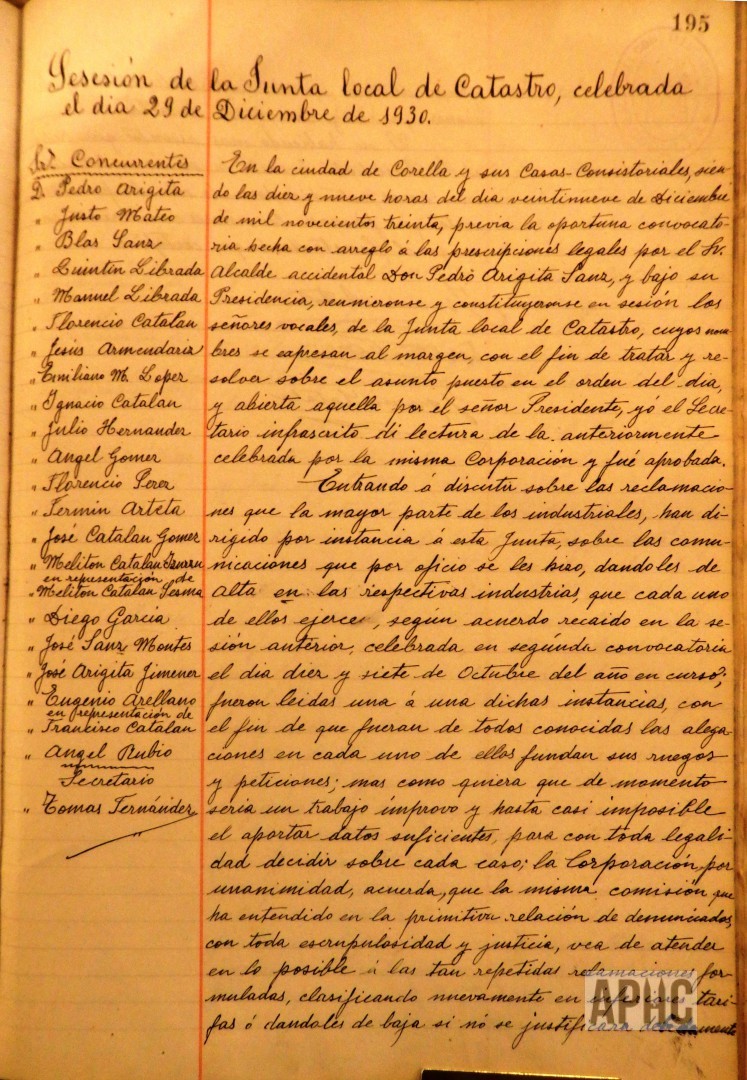 195
Sesesión de la Junta local de Catastro, celebrada
el dia 29 de Diciembre de 1930.
Concurrentes
D. Pedro Arigita
" Justo Mateo
" Blas Sanz
" Quintin Librada
" Manuel Librada
" Florencio Catalan
" Jesús Armendariz
" Emiliano M. Lopez
" Ignacio Catalan
" Julio Hernandez
" Angel Gomez
" Florencio Perez
" Fermin Arteta
" José Catalan Gomez
" Meliton Catalan
en representación de
" Meliton Catalan Sesma
" Diego Garcia
" José Sanz Montes
" José Arigita Jimenez
" Eugenio Arellano
en representación de
" Francisco Catalan
" Angel Rubio
Secretario
" Tomas Fernández
En la ciudad de Corella y sus Casas-Consistoriales, sien-
do las diez y nueve horas del dia veintinueve de Diciembre
de mil novecientos treinta, previa la oportuna convocato-
ria hecha con arreglo á las prescripciones legales por el Sr.
Alcalde accidental Don Pedro Arigita Sanz, y bajo su
Presidencia, reunieronse y constituyeronse en sesión los
señores vocales, de la Junta local de Catastro, cuyos nom-
bres se expresan al margen, con el fin de tratar y re-
solver sobre el asunto puesto en el orden del dia,
y abierta aquella por el señor Presidente, yó el Secre-
tario infrascrito di lectura de la anteriormente
celebrada por la misma Corporación y fué aprobada.
Entrando á discutir sobre las reclamacio-
nes que la mayor parte de los industriales, han di-
rigido por instancia á esta Junta, sobre las comu-
nicaciones que por oficio se les hizo, dandoles de
alta en las respectivas industrias, que cada uno
de ellos ejerce, según acuerdo recaido en la se-
sión anterior, celebrada en segúnda convocatoria
el dia diez y siete de Octubre del año en curso;
fueron leidas una á una dichas instancias, con
el fin de que fueran de todos conocidas las alega-
ciones en cada uno de ellos fundan sus ruegos
y peticiones; mas como quiera que de momento
seria un trabajo improvo y hasta casi imposible
el aportar datos suficientes, para con toda legali-
dad decidir sobre cada caso; la Corporación, por
unanimidad, acuerda, que la misma comisión que
ha entendido en la primitiva relación de denunciados,
con toda escrupulosidad y justicia, vea de atender
en lo posible á las tan repetidas reclamaciones for-
muladas, clasificando nuevamente en inferiores tari-
fas ó dandoles de baja si nó se justificara debidamente
APHC